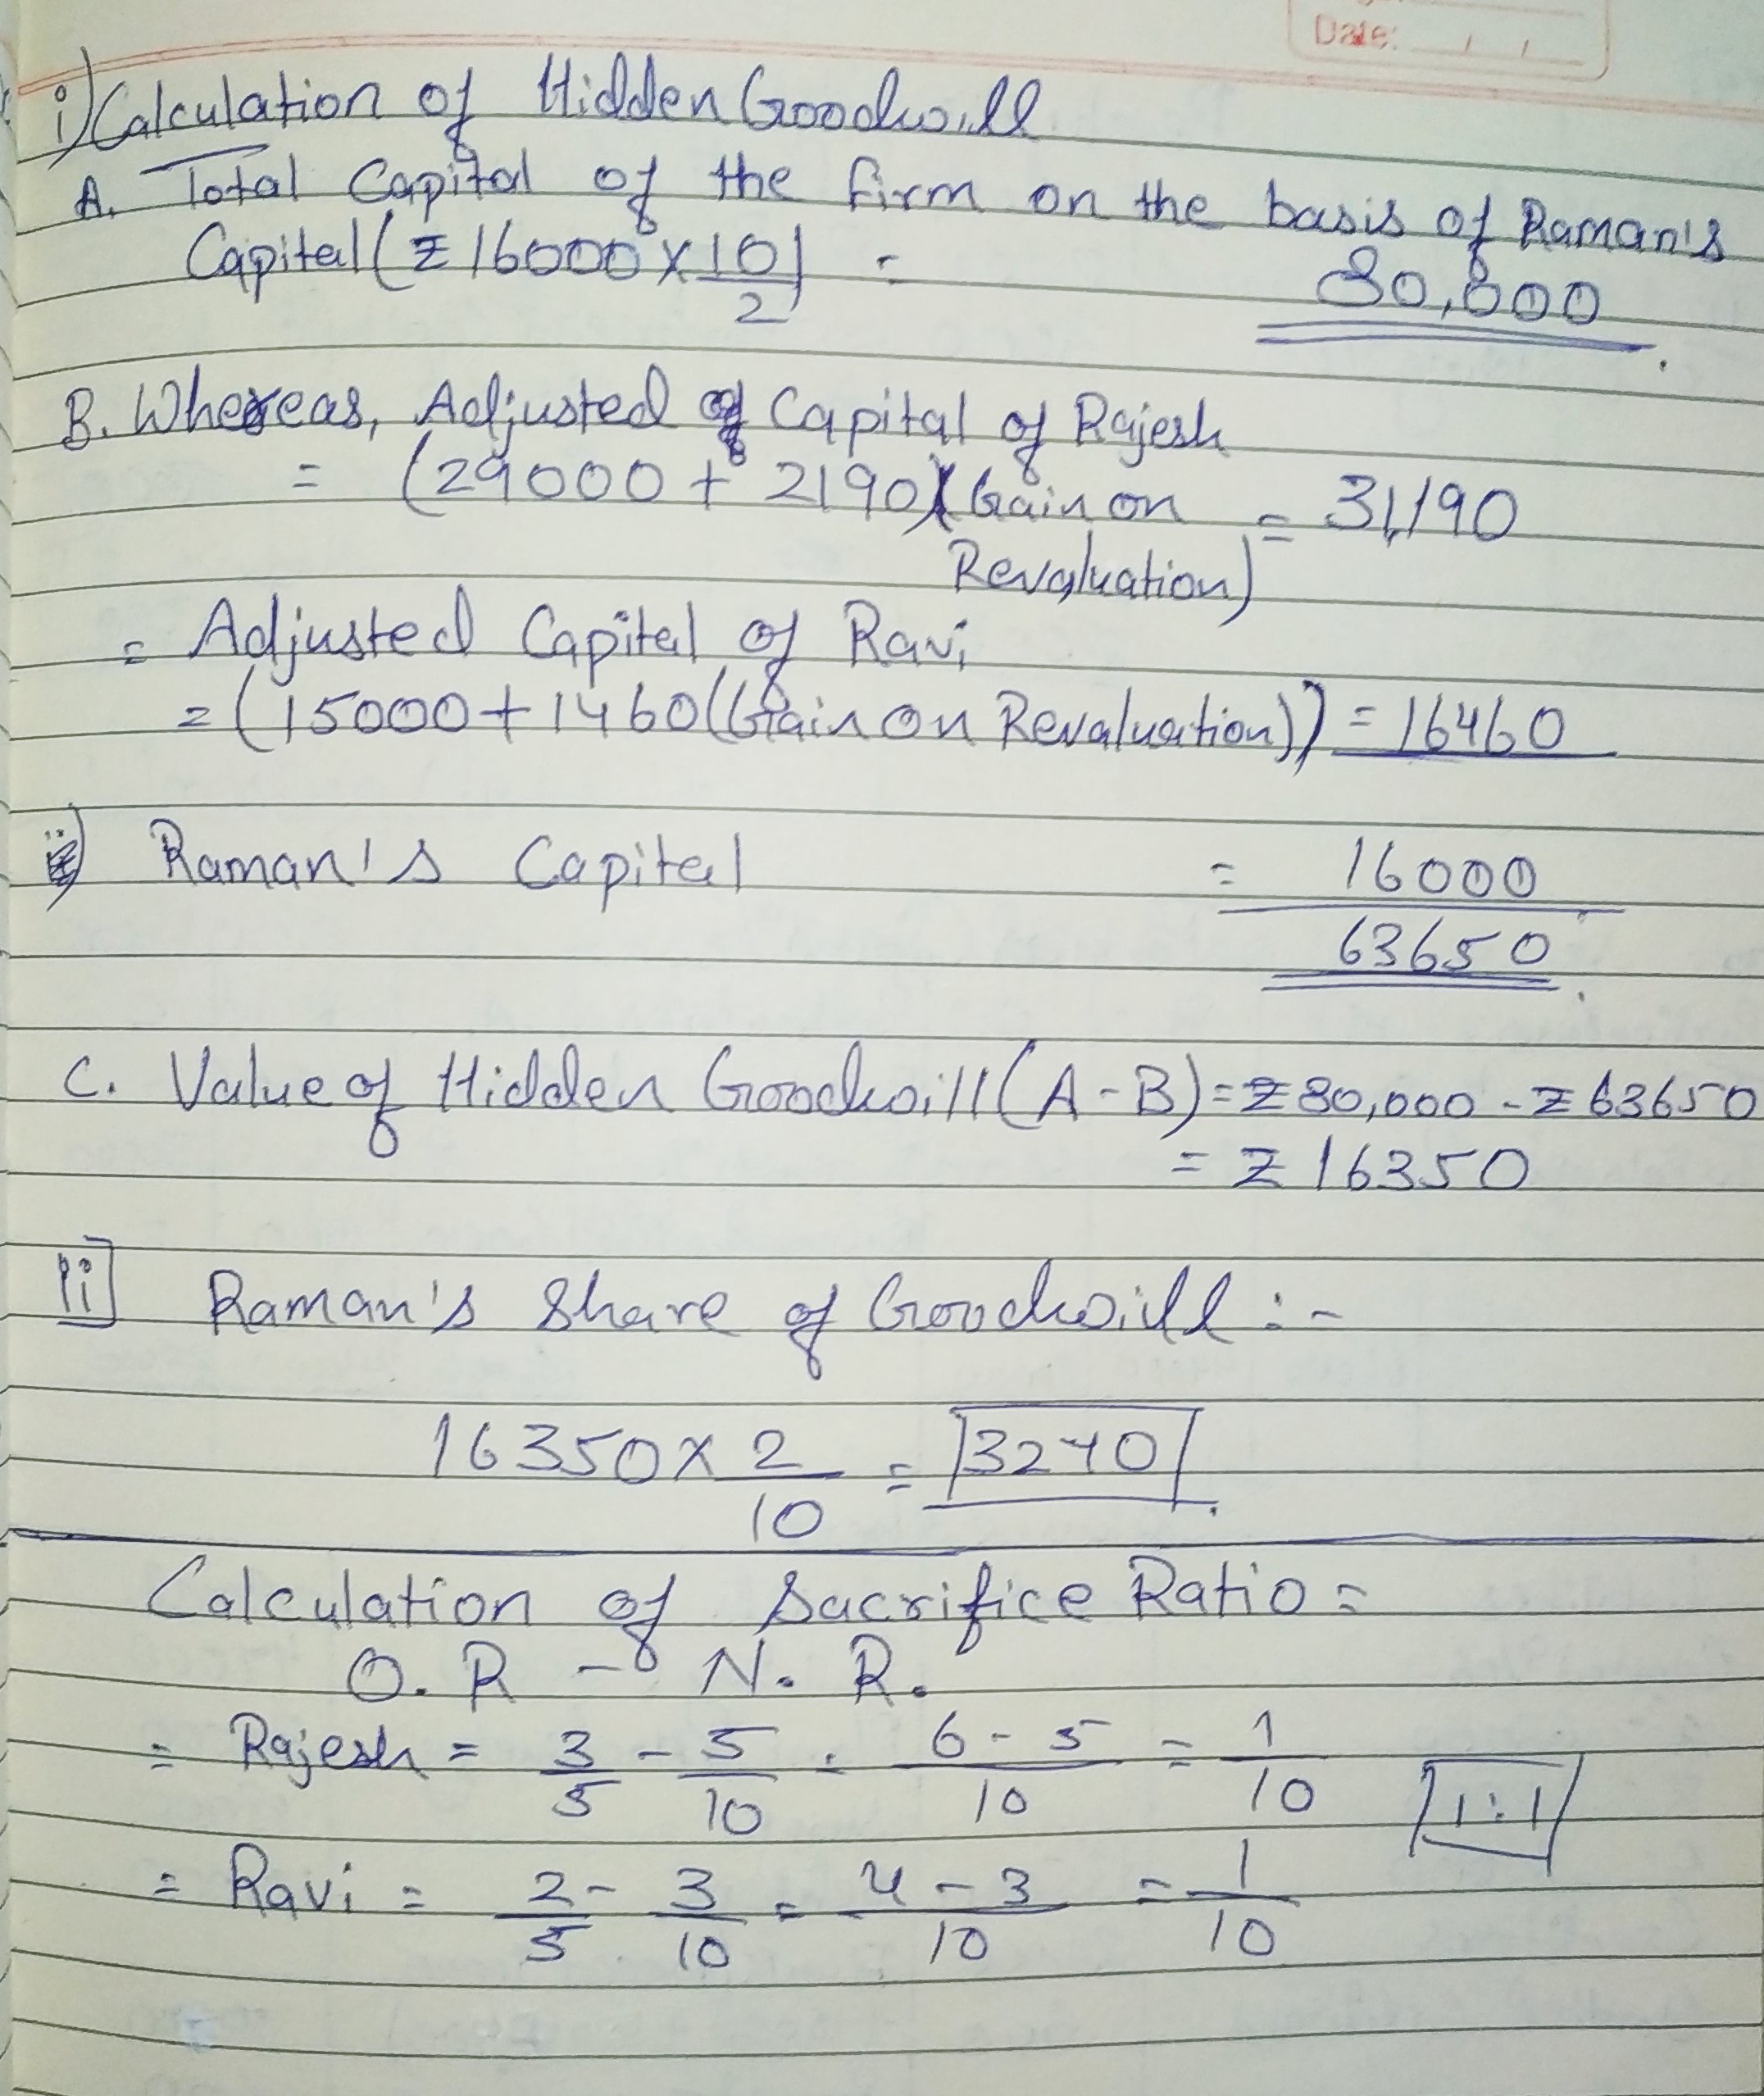 Date: / /
i) Calculation of Hidden Goodwill
A. Total Capital of the firm on the basis of Raman's
Capital (₹ 16000 × 10/2) = 80,000
B. Whereas, Adjusted of Capital of Rajesh
= (29000 + 2190) (Gain on = 31,190
Revaluation)
= Adjusted Capital of Ravi
= (15000 + 1460 (Gain on Revaluation)) = 16460
ii) Raman's Capital = 16000
63650
C. Value of Hidden Goodwill (A - B) = ₹ 80,000 - ₹ 63650
= ₹ 16350
ii] Raman's Share of Goodwill :-
16350 × 2/10 = 3270
Calculation of Sacrifice Ratio =
O. R - N. R.
= Rajesh = 3/5 - 5/10 = 6 - 5/10 = 1/10
1:1
= Ravi = 2/5 - 3/10 = 4 - 3/10 = 1/10